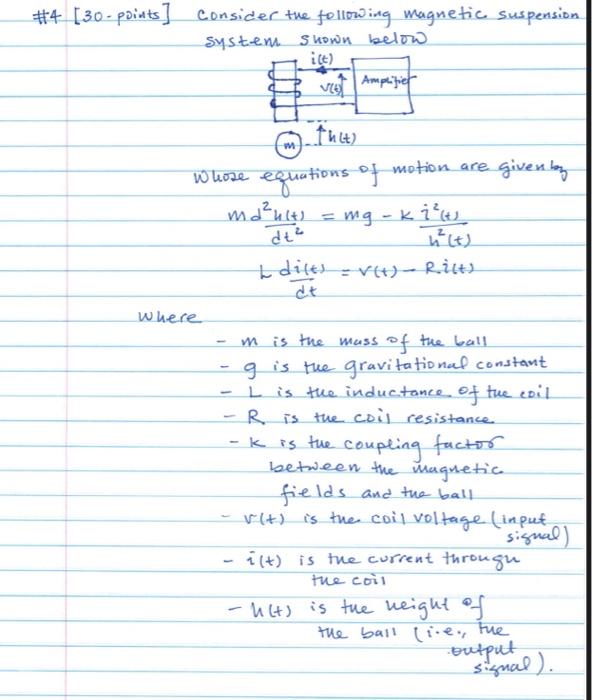 #4 [30-points] Consider the following magnetic suspension
system shown below
i(t)
v(t) Amplifier
m h(t)
Whose equations of motion are given by
m d²h(t)/dt² = mg - k i²(t)/h²(t)
L di(t)/dt = v(t) - Ri(t)
where
- m is the mass of the ball
- g is the gravitational constant
- L is the inductance of the coil
- R is the coil resistance
- k is the coupling factor
between the magnetic
fields and the ball
- v(t) is the coil voltage (input
signal)
- i(t) is the current through
the coil
- h(t) is the height of
the ball (i.e., the
output
signal).